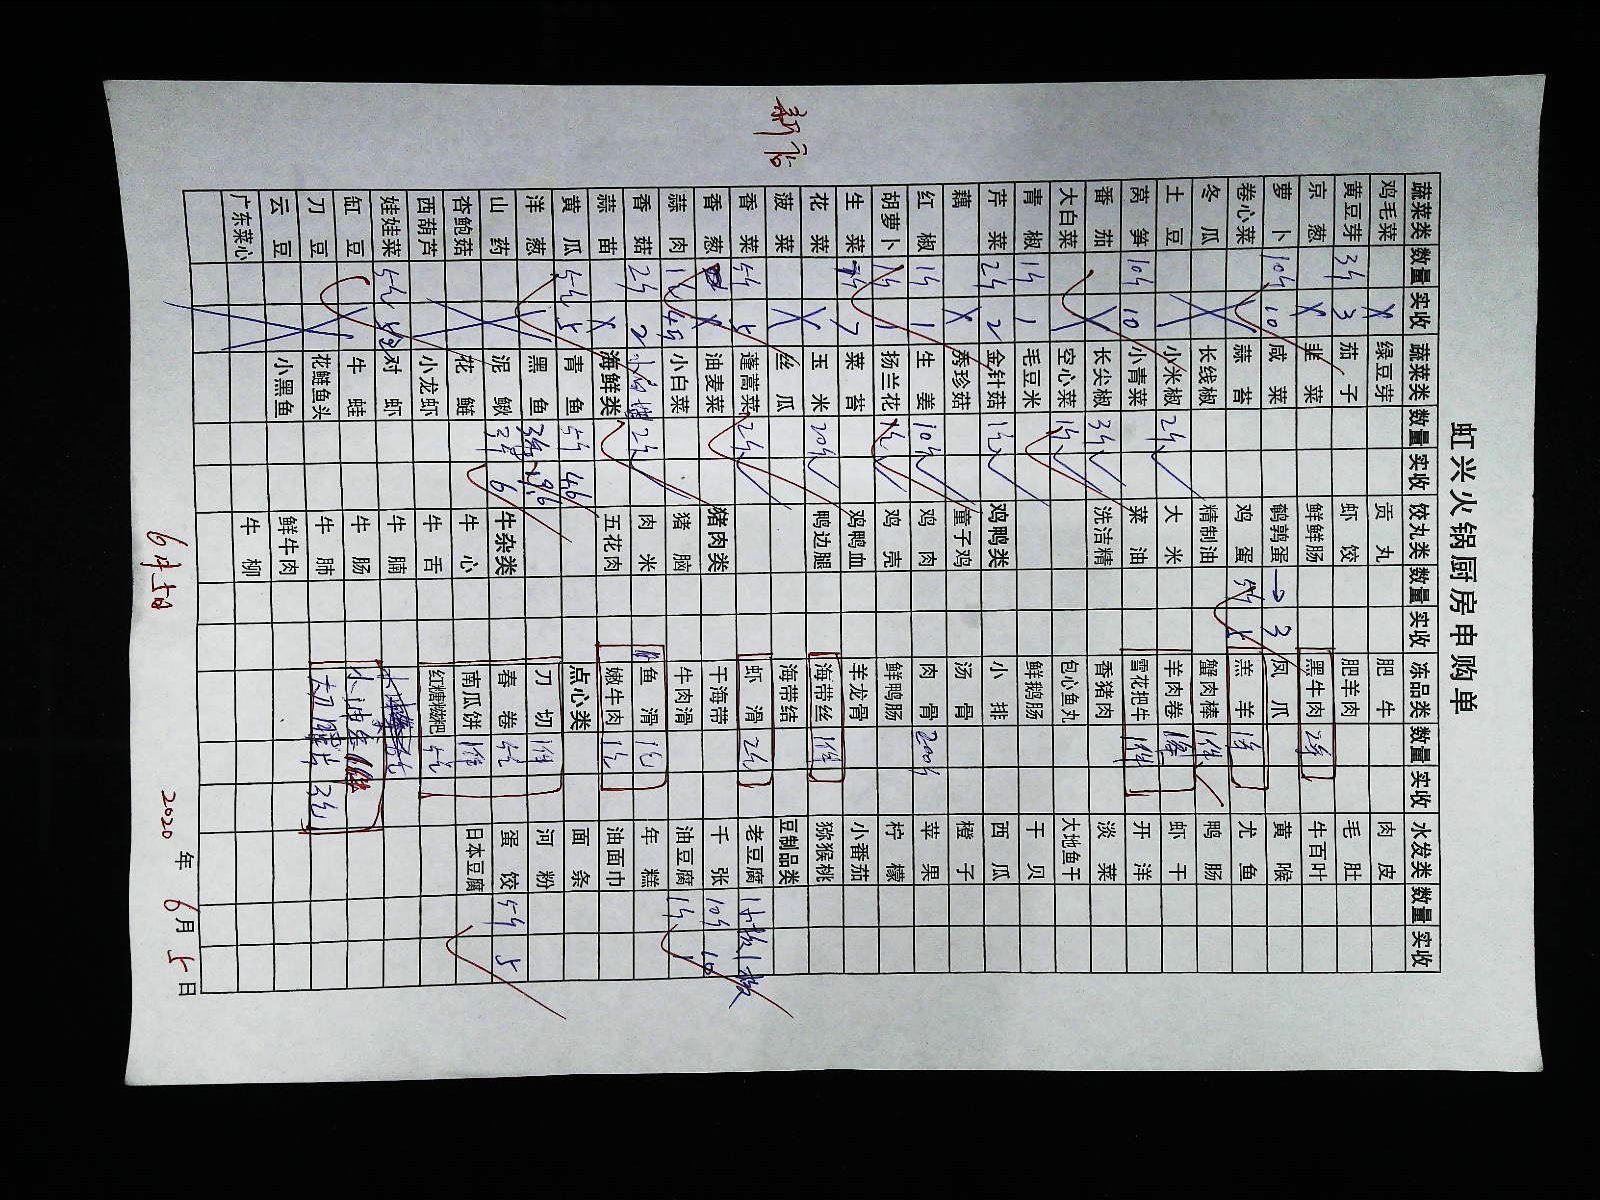 虹兴火锅厨房申购单
蔬菜类 数量 实收 蔬菜类 数量 实收 饺丸类 数量 实收 冻品类 数量 实收 水发类 数量 实收
鸡毛菜 X 绿豆芽 贡丸 肥牛 肉皮
黄豆芽 3斤 3 茄子 虾饺 肥羊肉 毛肚
京葱 X 韭菜 鲜鲜肠 黑牛肉 2件 牛百叶
萝卜 10斤 10 咸菜 鹌鹑蛋 → 3 凤爪 黄喉
卷心菜 蒜苔 鸡蛋 5斤 5 羔羊 1件 尤鱼
冬瓜 X 长线椒 精制油 蟹肉棒 1件 ✓ 鸭肠
土豆 小米椒 2斤 ✓ 大米 羊肉卷 1件 虾干
莴笋 10斤 10 小青菜 菜油 雪花把牛 1件 开洋
番茄 X 长尖椒 3斤 ✓ 洗洁精 香猪肉 淡菜
大白菜 空心菜 1斤 ✓ 包心鱼丸 大地鱼干
青椒 1斤 1 毛豆米 鲜鹅肠 干贝
芹菜 2斤 2 金针菇 1包 ✓ 鸡鸭类 小排 西瓜
藕 X 秀珍菇 童子鸡 汤骨 橙子
红椒 1斤 1 生姜 10斤 ✓ 鸡肉 肉骨 200斤 苹果
胡萝卜 1斤 1 扬兰花 1包 ✓ 鸡壳 鲜鸭肠 柠檬
生菜 7斤 7 菜苔 鸡鸭血 羊龙骨 小番茄
花菜 玉米 20斤 ✓ 鸭边腿 海带丝 1件 猕猴桃
菠菜 X 丝瓜 海带结 豆制品类
香菜 5斤 5 蓬蒿菜 2斤 ✓ 虾滑 2包 老豆腐 1板 1板
香葱 X 油麦菜 猪肉类 干海带 千张 10斤 10
蒜肉 1包 4斤 小白菜 猪脑 牛肉滑 油豆腐 1斤 1
香菇 2斤 2 2包 ✓ 肉米 鱼滑 1包 年糕
蒜苗 X 海鲜类 五花肉 嫩牛肉 1包 油面巾
黄瓜 5斤 5 青鱼 5斤 4.6 点心类 面条
洋葱 黑鱼 3条 9.6 刀切 1件 河粉
山药 泥鳅 6 牛杂类 春卷 5包 蛋饺 5斤 5
杏鲍菇 花鲢 牛心 南瓜饼 1件 日本豆腐
西葫芦 小龙虾 牛舌 红糖糍粑 5包
娃娃菜 5包 5包 对虾 牛腩
缸豆 牛蛙 牛肠 小油条 1件
刀豆 花鲢鱼头 牛肺 大刀腰片 3包
云豆 小黑鱼 鲜牛肉
广东菜心 牛柳
新店
6月5日
2020年6月5日